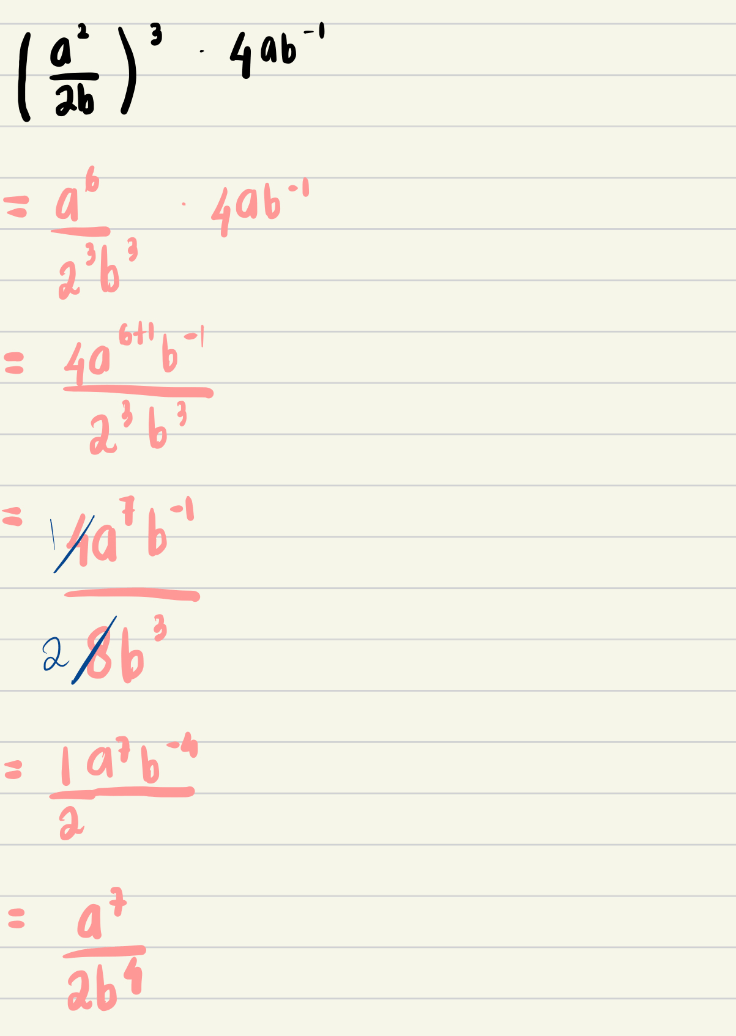 (a²/2b)³ · 4ab⁻¹
= a⁶/2³b³ · 4ab⁻¹
= 4a⁶⁺¹b⁻¹/2³b³
= 1 4a⁷b⁻¹/2 8b³
= 1a⁷b⁻⁴/2
= a⁷/2b⁴